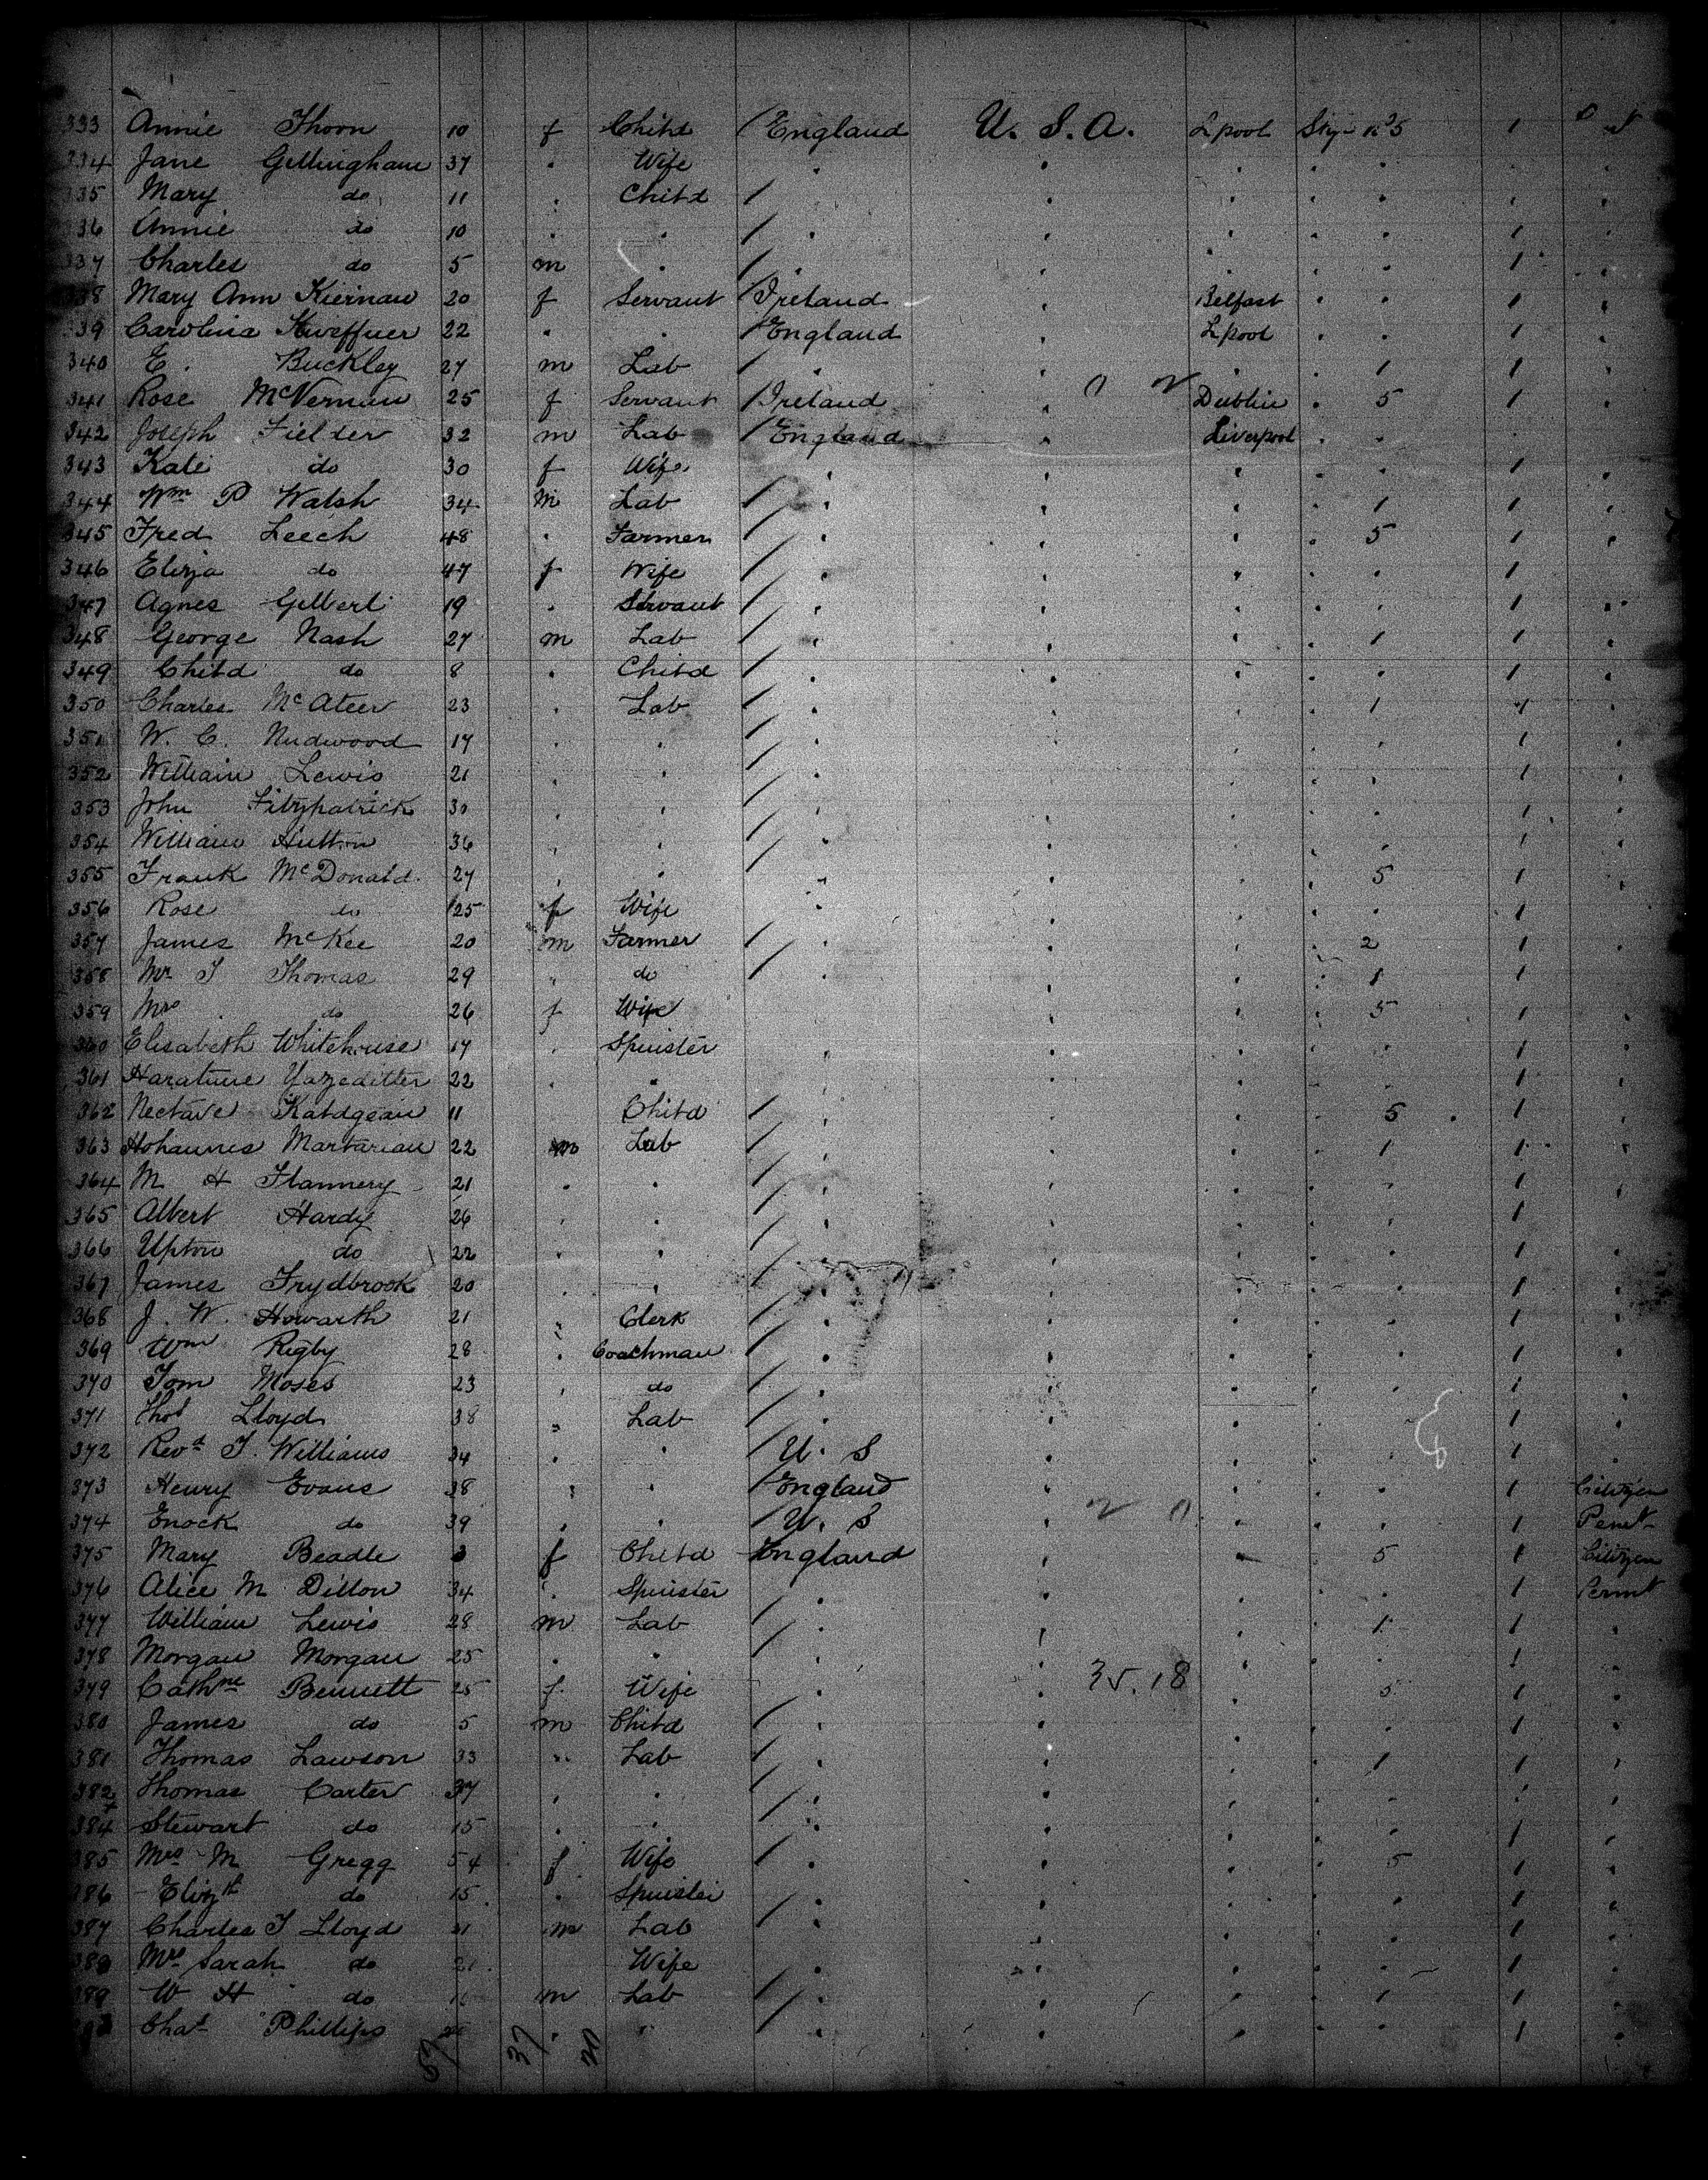 333 Annie Thorn 10 f Child England U. S. A. Lpool 1
334 Jane Gillingham 37 " Wife " " " " "
335 Mary do 11 " Child / " " " " " "
336 Annie do 10 " " / " " " " " 1 "
337 Charles do 5 m " / " " " " " 1 "
338 Mary Ann Kiernan 20 f Servant Ireland " Belfast " " 1 "
339 Carolina 22 " " England " Lpool " " 1 "
340 E. Buckley 27 m Lab / " " " " 1 1 "
341 Rose McVernan 25 f Servant Ireland " Dublin " 5 1 "
342 Joseph Fielder 32 m Lab England " Liverpool " "
343 Kate do 30 f Wife " " " " " 1 "
344 Wm P Walsh 34 m Lab / " " " " 1 1 "
345 Fred Leech 48 " Farmer / " " " " 5 1 "
346 Eliza do 47 f Wife / " " " " " 1 "
347 Agnes Gilbert 19 " Servant / " " " " " 1 "
348 George Nash 27 m Lab / " " " " 1 1 "
349 Child do 8 " Child / " " " " " 1 "
350 Charles McAteer 23 " Lab / " " " " 1 1 "
351 W. C. Nudwood 17 " " / " " " " " 1 "
352 William Lewis 21 " " / " " " " " 1 "
353 John Fitzpatrick 30 " " / " " " " " 1 "
354 William Hutton 36 " " / " " " " " 1 "
355 Frank McDonald 27 " " / " " " " 5 1 "
356 Rose do 25 f Wife " " " " " 1 "
357 James McKee 20 m Farmer / " " " " 2 1 "
358 Mr T Thomas 29 " do / " " " " 1 1 "
359 Mrs do 26 f Wife " " " " 5 1 "
360 Elisabeth Whitehouse 17 " Spinster " " " " " 1 "
361 22 " " " " " " " 1 "
362 Nectave 11 Child / " " " " 5 1 "
363 Hohannes Martarian 22 m Lab / " " " " 1 1 "
364 M H Flannery 21 " " / " " " " " 1 "
365 Albert Hardy 26 " " / " " " " " 1 "
366 Upton do 22 " " / " " " " " 1 "
367 James Frydbrook 20 " " / " " " " " 1 "
368 J. W. Howarth 21 " Clerk / " " " " " 1 "
369 Wm Rigby 28 " Coachman / " " " " " 1 "
370 Tom Moses 23 " do / " " " " " 1 "
371 Thos Lloyd 38 " Lab / " " " " " 1 "
372 Revd T. Williams 34 " " U. S " " " " 1 "
373 Henry Evans 38 " " England " " " " 1 Citizen
374 Enock do 39 " " U. S " " " " 1
375 Mary Beadle 3 f Child England " " " 5 1 Citizen
376 Alice M Dillon 34 " Spinster " " " " " 1
377 William Lewis 28 m Lab / " " " " 1 1 "
378 Morgan Morgan 25 " " / " " " " " 1 "
379 Cathne Bennett 25 f Wife " " 35.18 " " 5 1 "
380 James do 5 m Child / " " " " " 1 "
381 Thomas Lawson 33 " Lab / " " " " 1 1 "
382 Thomas Carter 37 " " / " " " " " 1 "
384 Stewart do 15 " " / " " " " " 1 "
385 Mrs M Gregg 54 f Wife / " " " " 5 1 "
386 Elizth do 15 " Spinster / " " " " " 1 "
387 Charles T Lloyd 21 m Lab / " " " " " 1 "
388 Mrs Sarah do 21 Wife " " " " " 1 "
389 W H do m Lab / " " " " 1 1 "
Chas Phillips " " / " " " " " 1 "
57 37 20